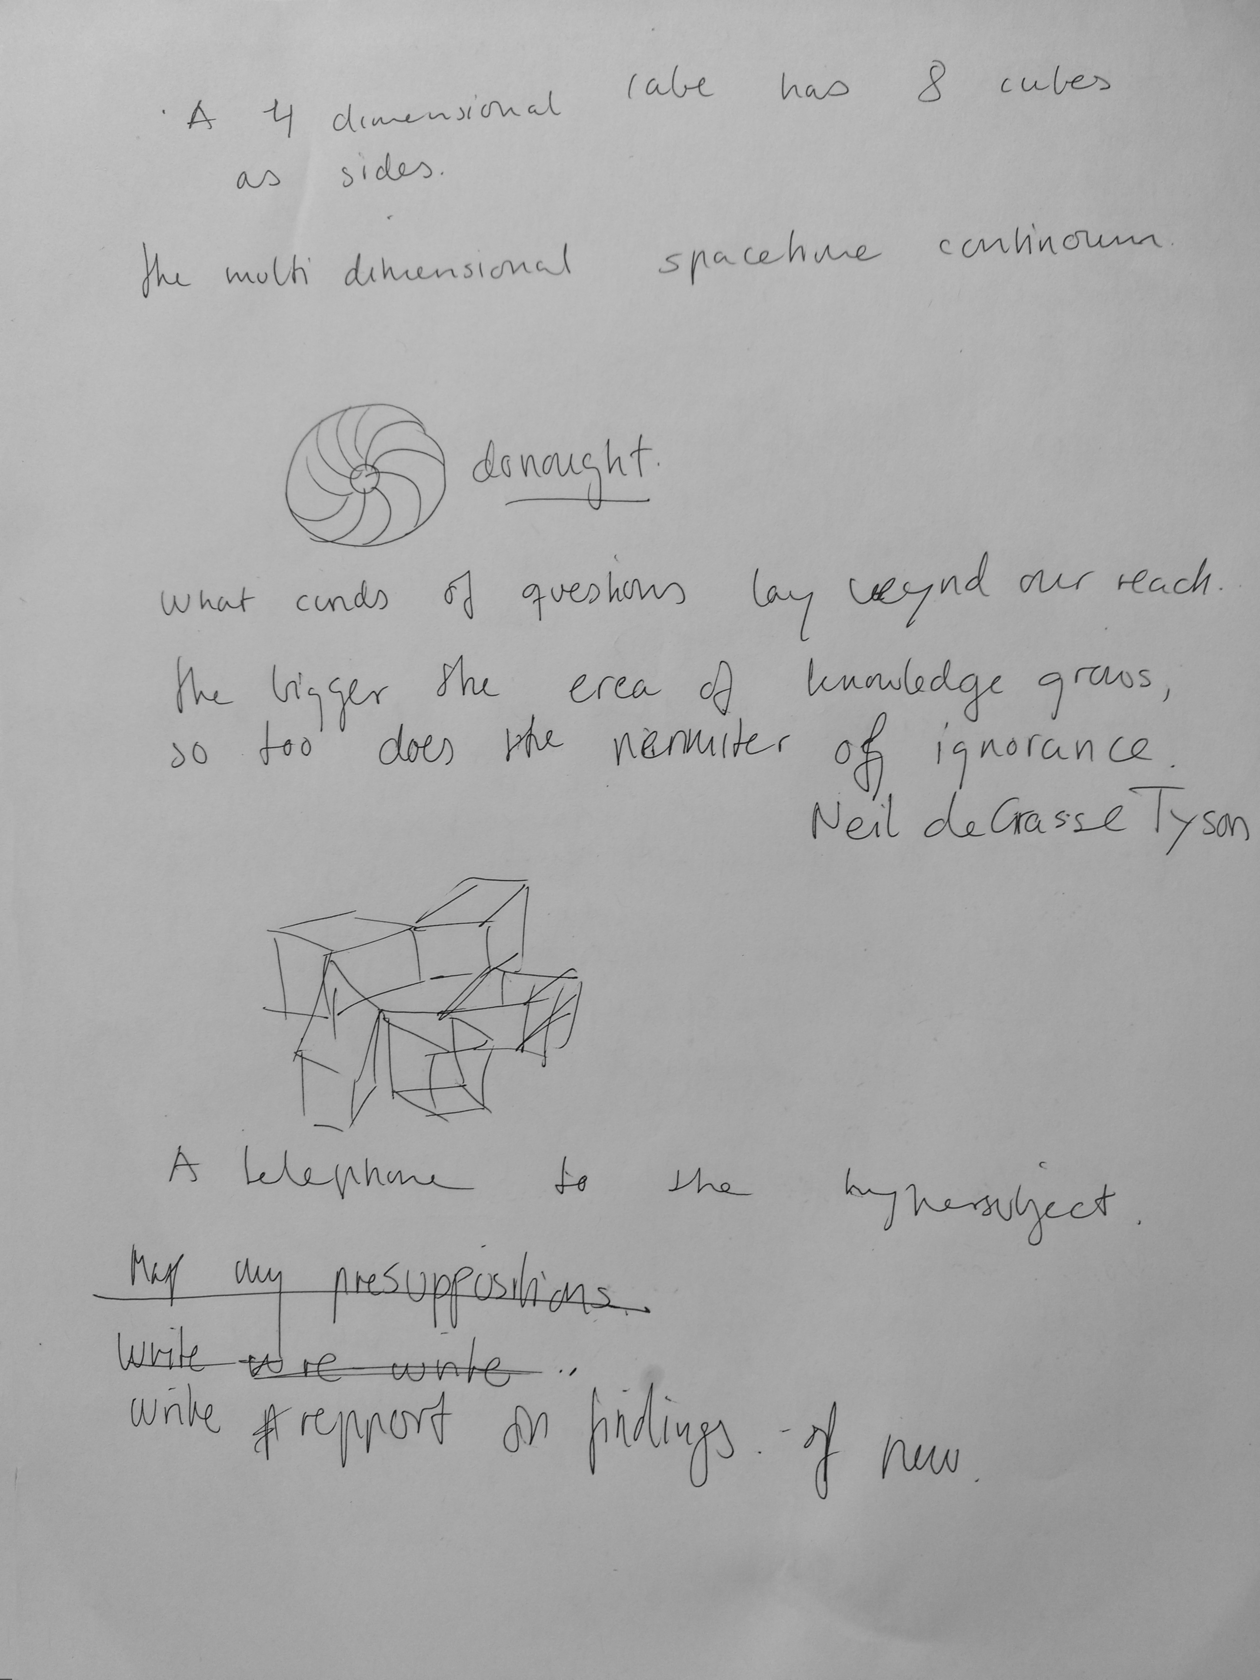 A 4 dimensional cube has 8 cubes
as sides.
the multi dimensional spacetime continoum.
donought.
what cinds of questions lay beynd our reach.
the bigger the erea of knowledge grows,
so too does the permiter of ignorance.
Neil deGrasse Tyson
A telephone to the hypersubject.
Map my presuppositions.
write re write ..
write repport on findings. - of new.